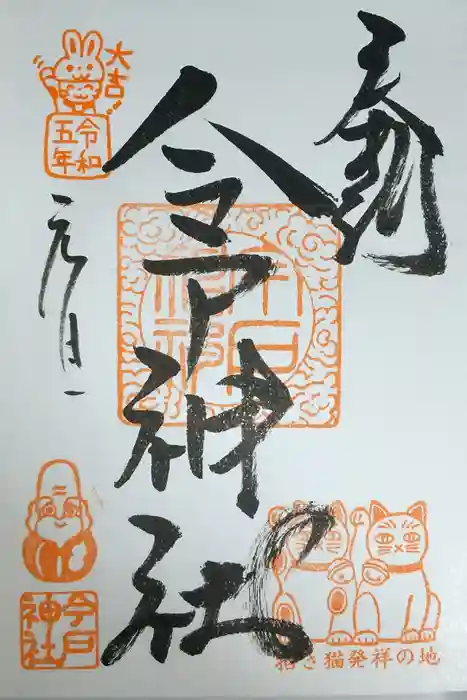 奉拝
今戸神社
今戸神社
大吉
令和
五年
元旦
今戸
神社
招き猫発祥の地